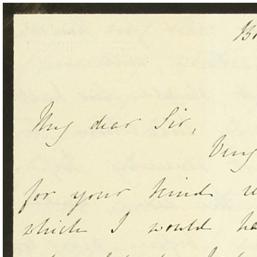 My dear Sir,
Very
for your kind
which I would